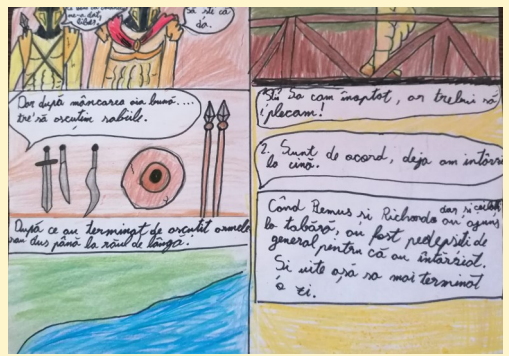 ne-a dat,
Să știi că
da.
Dar după mâncarea aia bună....
tre' să ascutim sabiile.
După ce au terminat de ascutit armele
s-au dus până la râul de lângă.
Sa cam înoptat, ar trebui să
plecam!
2. Sunt de acord, deja am întârzi
la cină.
Când Remus si Richardo dar si ceilalți au ajuns
la tabără, au fost pedepsiti de
general pentru că au întârziat.
Si uite așă sa mai terminat
o zi.